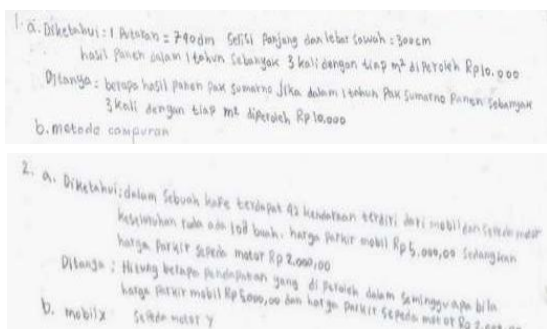 1. a. Diketahui : 1 Putaran = 790dm selisi Panjang dan lebar sawah = 300cm
hasil Panen dalam 1 tahun sebanyak 3 kali dengan tiap m² diPeroleh Rp10.000
Ditanya : berapa hasil panen Pak sumarno Jika dalam 1 tahun Pak Sumarno Panen sebanyak
3 kali dengan tiap m² diperoleh Rp 10.000
b. metode campuran
2. a. Diketahui : dalam sebuah kafe terdapat 42 kendaraan terdiri dari mobil dan sepeda motor
keseluruhan roda ada 108 buah. harga parkir mobil Rp 5.000,00 sedangkan
harga parkir sepeda motor Rp 2.000,00
Ditanya : Hitung berapa Pendapatan yang di peroleh dalam seminggu apa bila
harga parkir mobil Rp 5.000,00 dan harga parkir sepeda motor Rp 2.000,00
b. mobil x sepeda motor y